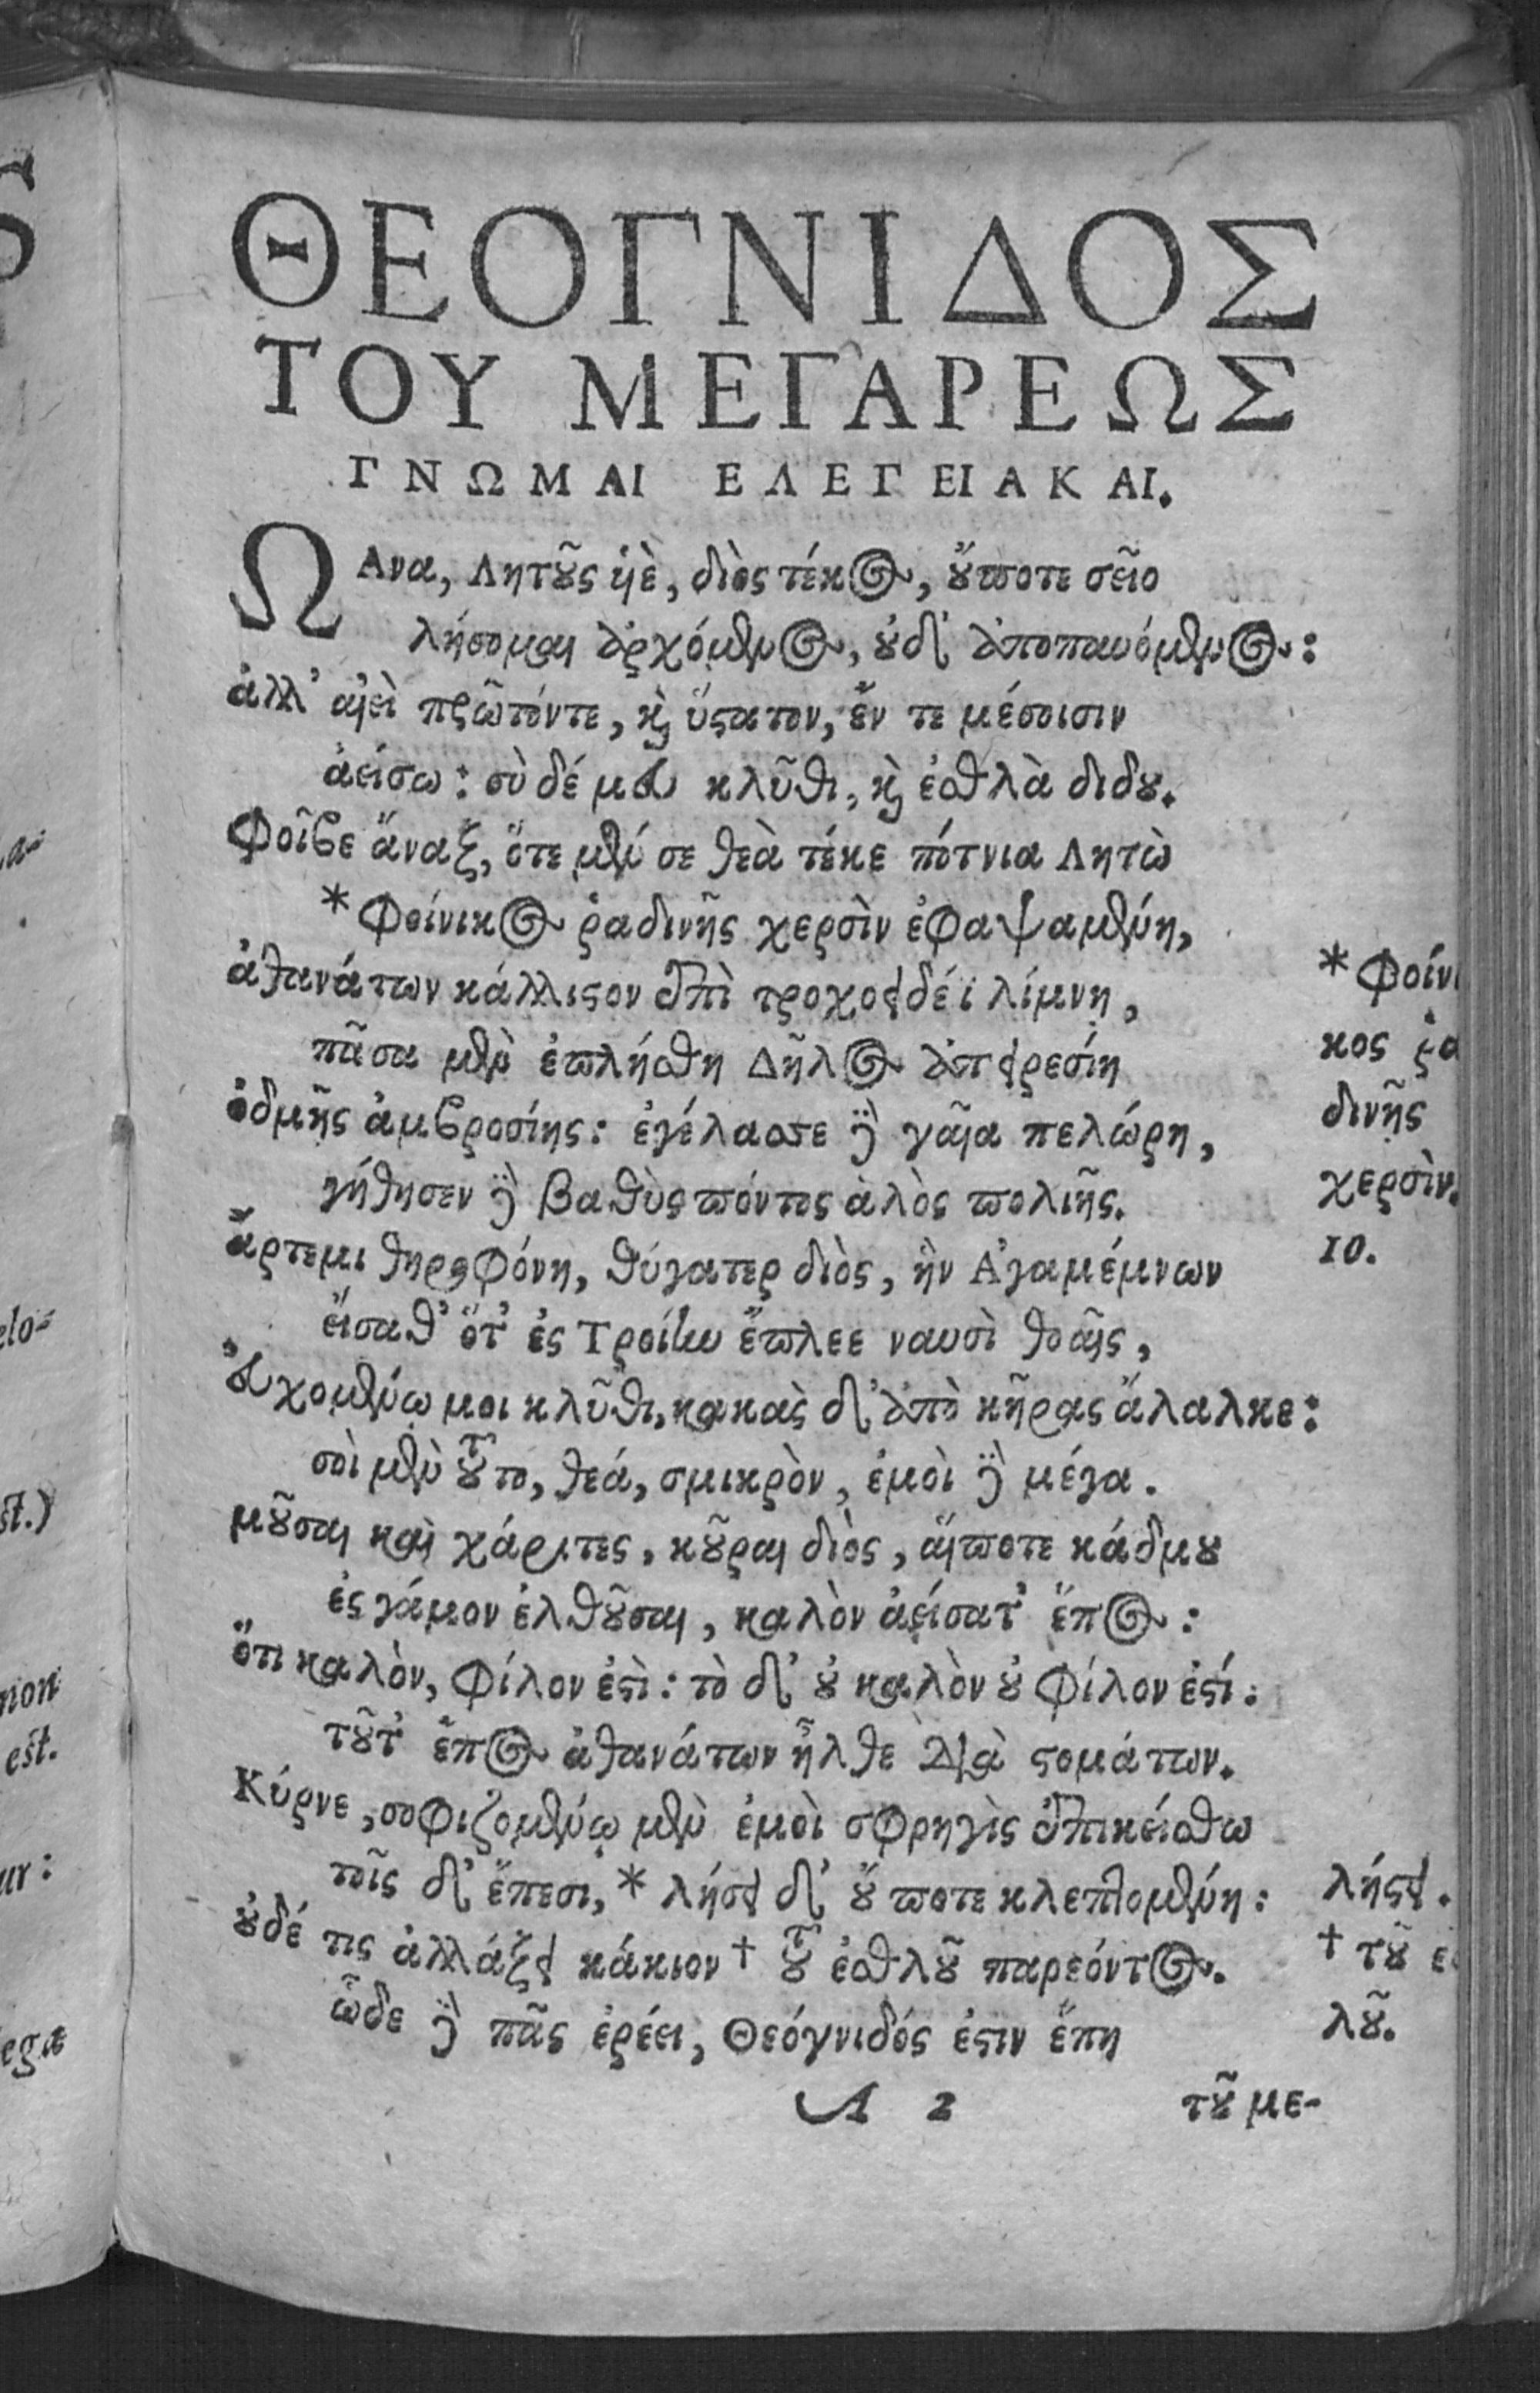 ΘΕΟΓΝΙΔΟΣ
ΤΟΥ ΜΕΓΑΡΕΩΣ
ΓΝΩΜΑΙ ΕΛΕΓΕΙΑΚΑΙ.
Ω Ανα, Λητοῦς ὑιὲ, διὸς τέκος, οὔποτε σεῖο
λήσομαι ἀρχόμενος, οὐδ' ἀποπαυόμενος:
ἀλλ' αἰεὶ πρῶτόντε, καὶ ὕστατον, ἔν τε μέσοισιν
ἀείσω: σὺ δέ μου κλῦθι, καὶ ἐσθλὰ διδου.
Φοῖβε ἄναξ, ὅτε μέν σε θεὰ τέκε πότνια Λητὼ
*Φοίνικος ῥαδινῆς χερσὶν ἐφαψαμένη,
ἀθανάτων κάλλιστον ἐπὶ τροχοειδέϊ λίμνη,
πᾶσα μὲν ἐπλήσθη Δῆλος ἀπειρεσίη
ὀδμῆς ἀμβροσίης: ἐγέλασσε δὲ γαῖα πελώρη,
γήθησεν δὲ βαθὺς πόντος ἁλὸς πολιῆς.
ἄρτεμι θηροφόνη, θύγατερ διὸς, ἣν Ἀγαμέμνων
εἵσαθ' ὅτ' ἐς Τροίην ἔπλεε ναυσὶ θοαῖς,
εὐχομένῳ μοι κλῦθι, κακὰς δ' ἀπὸ κῆρας ἄλαλκε:
σοὶ μὲν τοῦτο, θεά, σμικρὸν, ἐμοὶ δὲ μέγα.
μοῦσαι καὶ χάριτες, κοῦραι διὸς, αἵποτε κάδμου
ἐς γάμον ἐλθοῦσαι, καλὸν ἀείσατ' ἔπος:
ὅτι καλὸν, φίλον ἐστὶ: τὸ δ' οὐ καλὸν οὐ φίλον ἐστί:
τοῦτ' ἔπος ἀθανάτων ἦλθε διὰ στομάτων.
Κύρνε, σοφιζομένῳ μὲν ἐμοὶ σφρηγὶς ἐπικείσθω
τοῖς δ' ἔπεσι, * λήσει δ' οὔ ποτε κλεπτομένη:
οὐδέ τις ἀλλάξει κάκιον † τοῦ ἐσθλοῦ παρεόντος.
ὧδε δὲ πᾶς ἐρέει, Θεόγνιδός ἐστιν ἔπη
A 2 τοῦ με-
* Φοίνι
κος ῥα
δινῆς
χερσὶν.
10.
λήσει.
† τοῦ ἐσ
λοῦ.